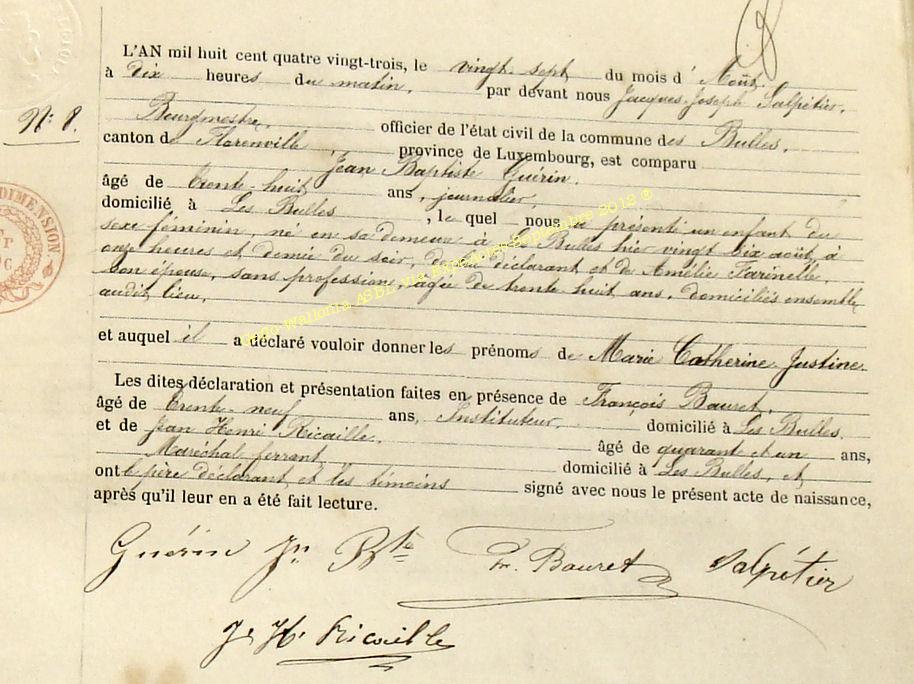 L'AN mil huit cent quatre vingt-trois, le vingt-sept du mois d' Août
à Dix heures du matin, par devant nous Jacques Joseph Salpétier,
Nº 8.
Bourgmestre, officier de l'état civil de la commune des Bulles,
canton de Florenville, province de Luxembourg, est comparu
Jean Baptiste Guérin,
âgé de trente-huit ans, journalier,
domicilié à Les Bulles, lequel nous a présenté un enfant du
sexe féminin, né en sa demeure à les Bulles hier vingt six août, à
onze heures et demie du soir, de lui déclarant et de Amélie
son épouse, sans profession, agée de trente huit ans, domiciliés ensemble
audit lieu.
et auquel il a déclaré vouloir donner les prénoms de Marie Catherine Justine
Les dites déclaration et présentation faites en présence de François Bauret,
âgé de trente-neuf ans, Instituteur, domicilié à Les Bulles
et de Jean Henri Ricaille, âgé de quarant et un ans,
Maréchal ferrant domicilié à Les Bulles, et
ont le père déclarant et les témoins signé avec nous le présent acte de naissance,
après qu'il leur en a été fait lecture.
Guérin Jn Bte Fr. Bauret Salpétier
Jn Hi Ricaille
DIMENSION
Wallonia ASBL Via Septembre 2012 ®